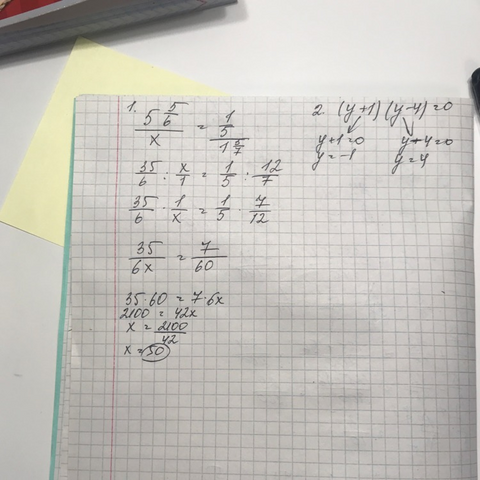 1. (5 5/6)/x = (1/5)/(1 5/7)
35/6 : x/1 = 1/5 : 12/7
35/6 · 1/x = 1/5 · 7/12
35/6x = 7/60
35·60 = 7·6x
2100 = 42x
x = 2100/42
x = 50
2. (y+1)(y-4)=0
y+1=0 y-4=0
y=-1 y=4